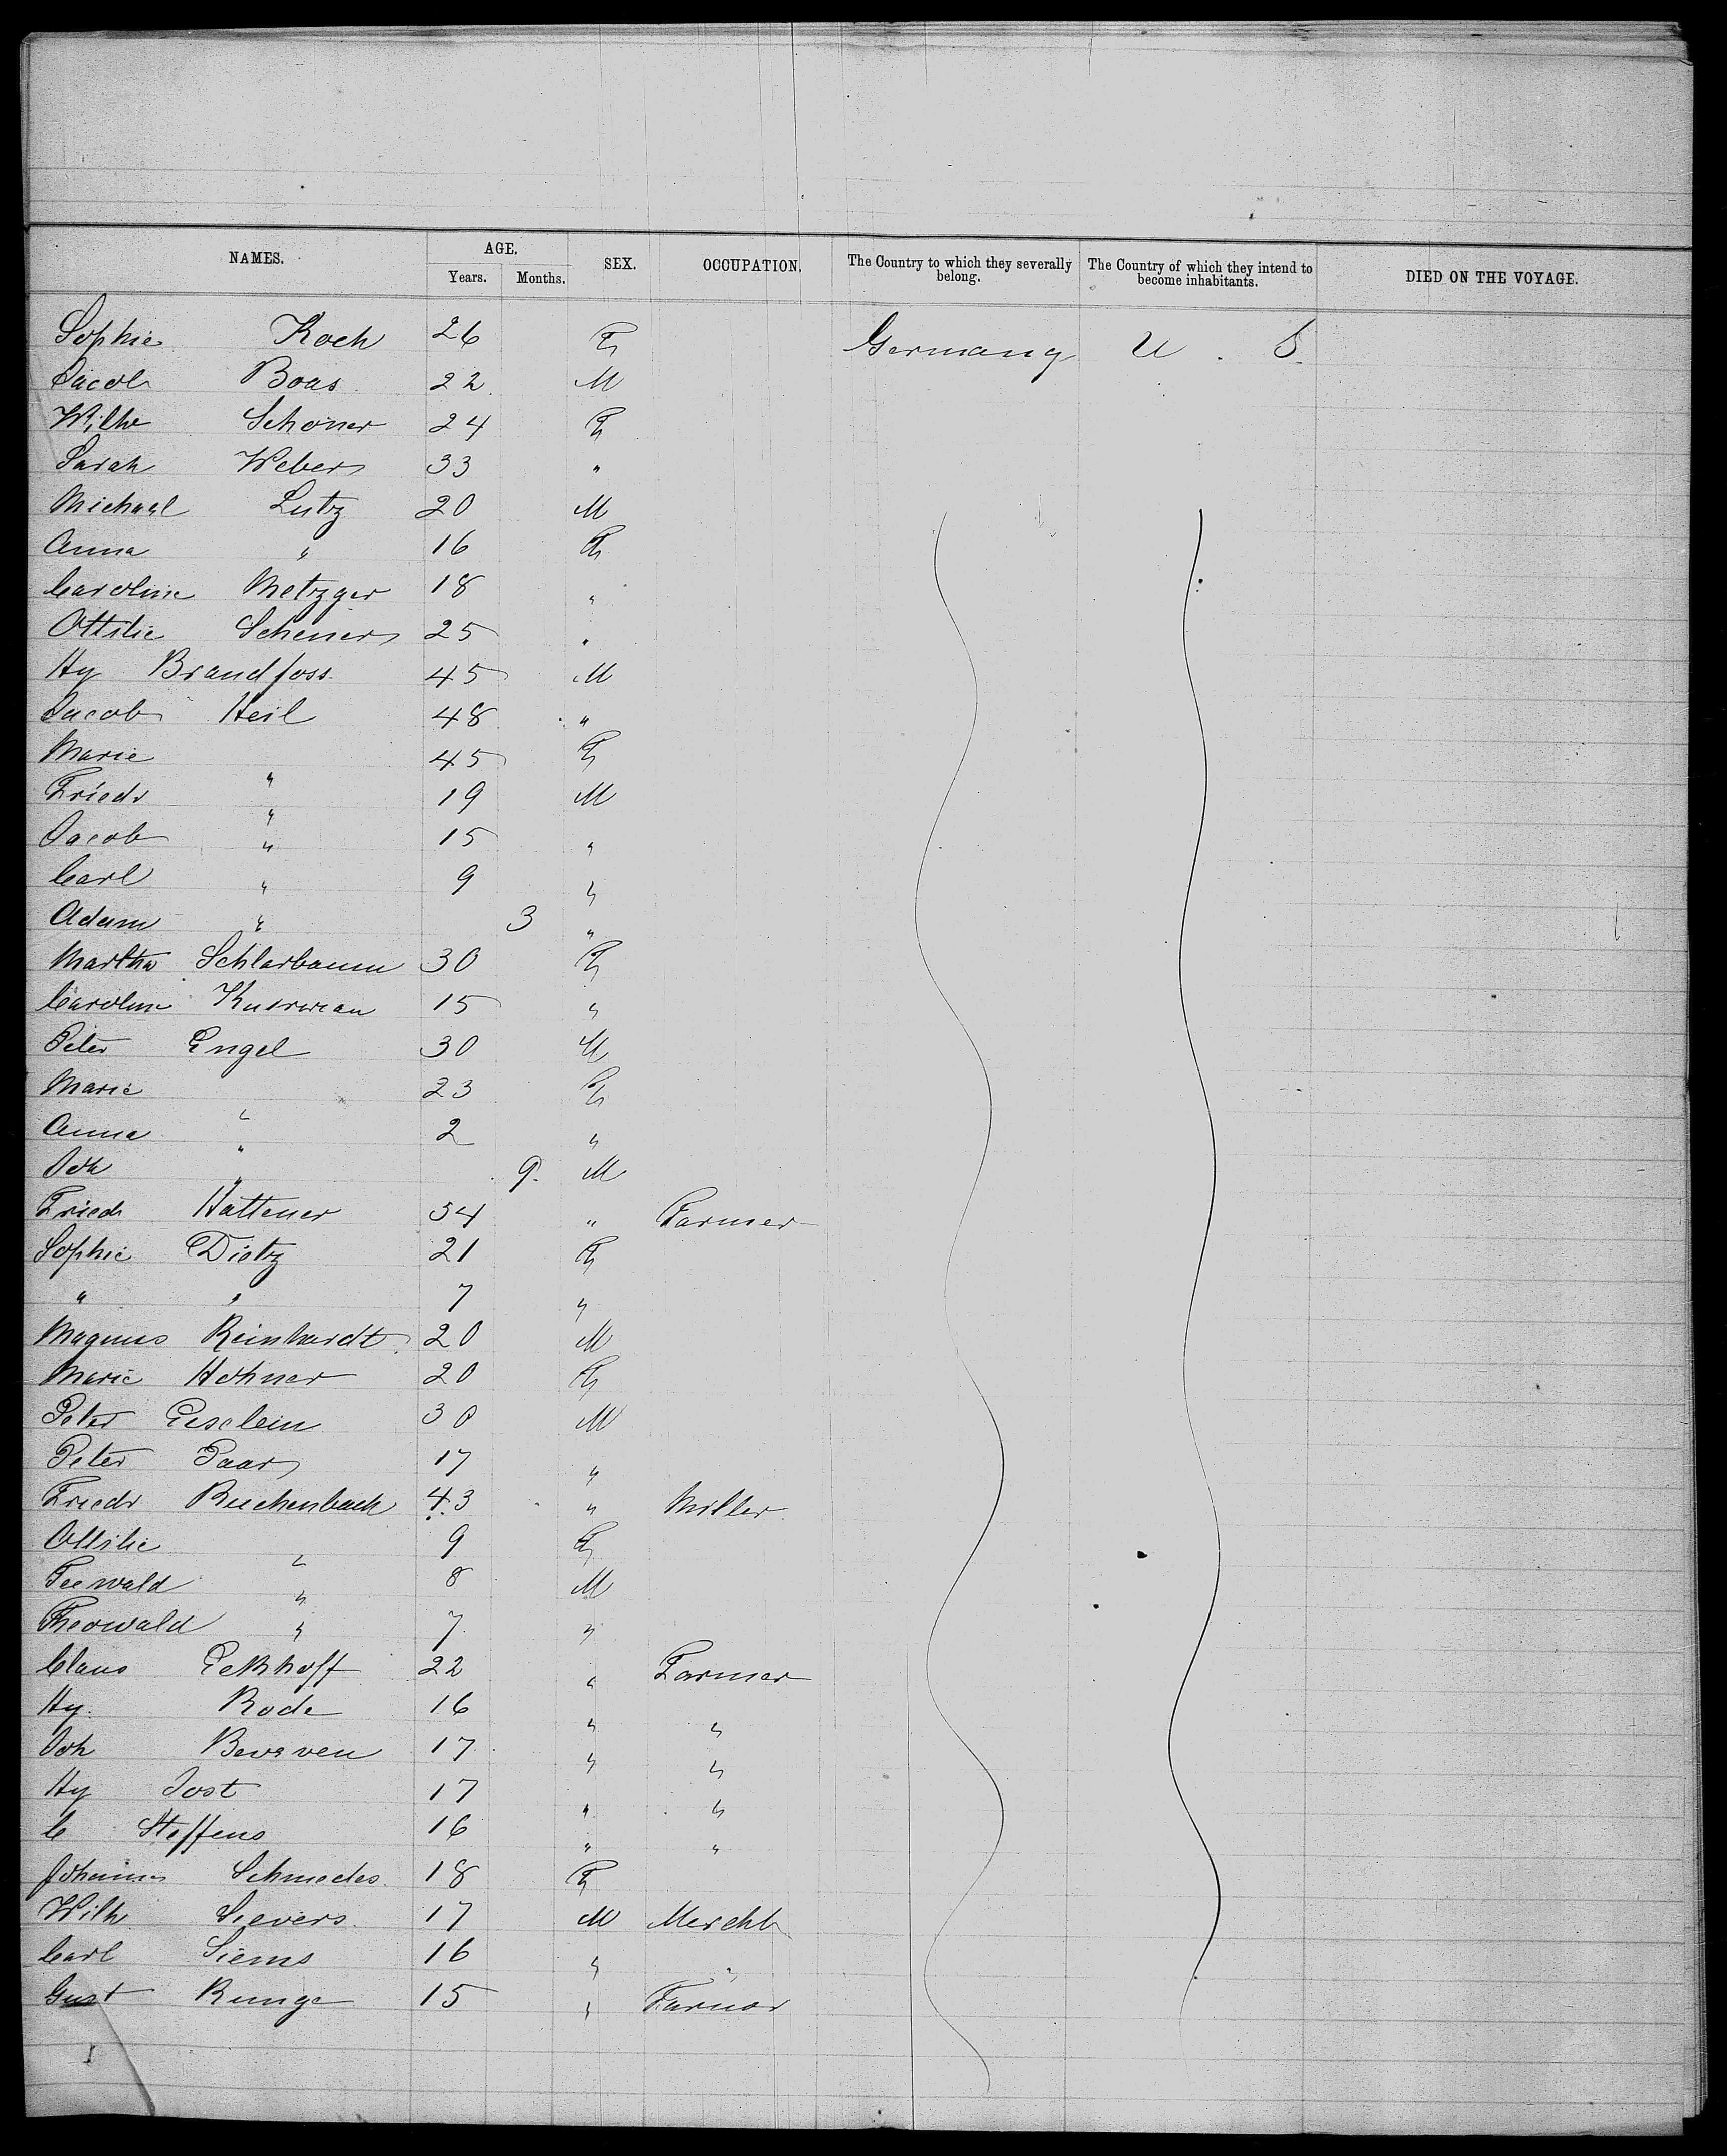 NAMES. AGE. SEX. OCCUPATION. The Country to which they severally belong. The Country of which they intend to become inhabitants. DIED ON THE VOYAGE.
Years. Months.
Sophie Koch 26 F Germany U. S.
Jacob Boas 22 M
Wilhe Schoner 24 F
Sarah Weber 33 "
Michael Lutz 20 M
Anna " 16 F
Caroline Metzger 18 "
Ottilie Scheuer 25 "
Hy Brandfoss 45 M
Jacob Heil 48 "
Marie " 45 F
Friedr " 19 M
Jacob " 15 "
Carl " 9 "
Adam " 3 "
Martha Schlarbaum 30 F
Caroline 15 "
Peter Engel 30 M
Marie " 23 F
Anna " 2 "
Joh " 9 M
Friedr Hattener 54 " Farmer
Sophie Dietz 21 F
" " 7 "
Magnus Reinhardt 20 M
Marie Hohner 20 F
Peter 30 M
Peter Paar 17 "
Friedr Buchenbach 43 " Miller
Ottilie " 9 F
Teewald " 8 M
Theowald " 7 "
Claus Eckhoff 22 " Farmer
Hy. Rode 16 " "
Joh 17 " "
Hy Jost 17 " "
C Steffens 16 " "
Johanna Schmedes 18 F
Wilh Sievers 17 M Mercht
Carl Siems 16 " "
Gust Runge 15 " Farmer